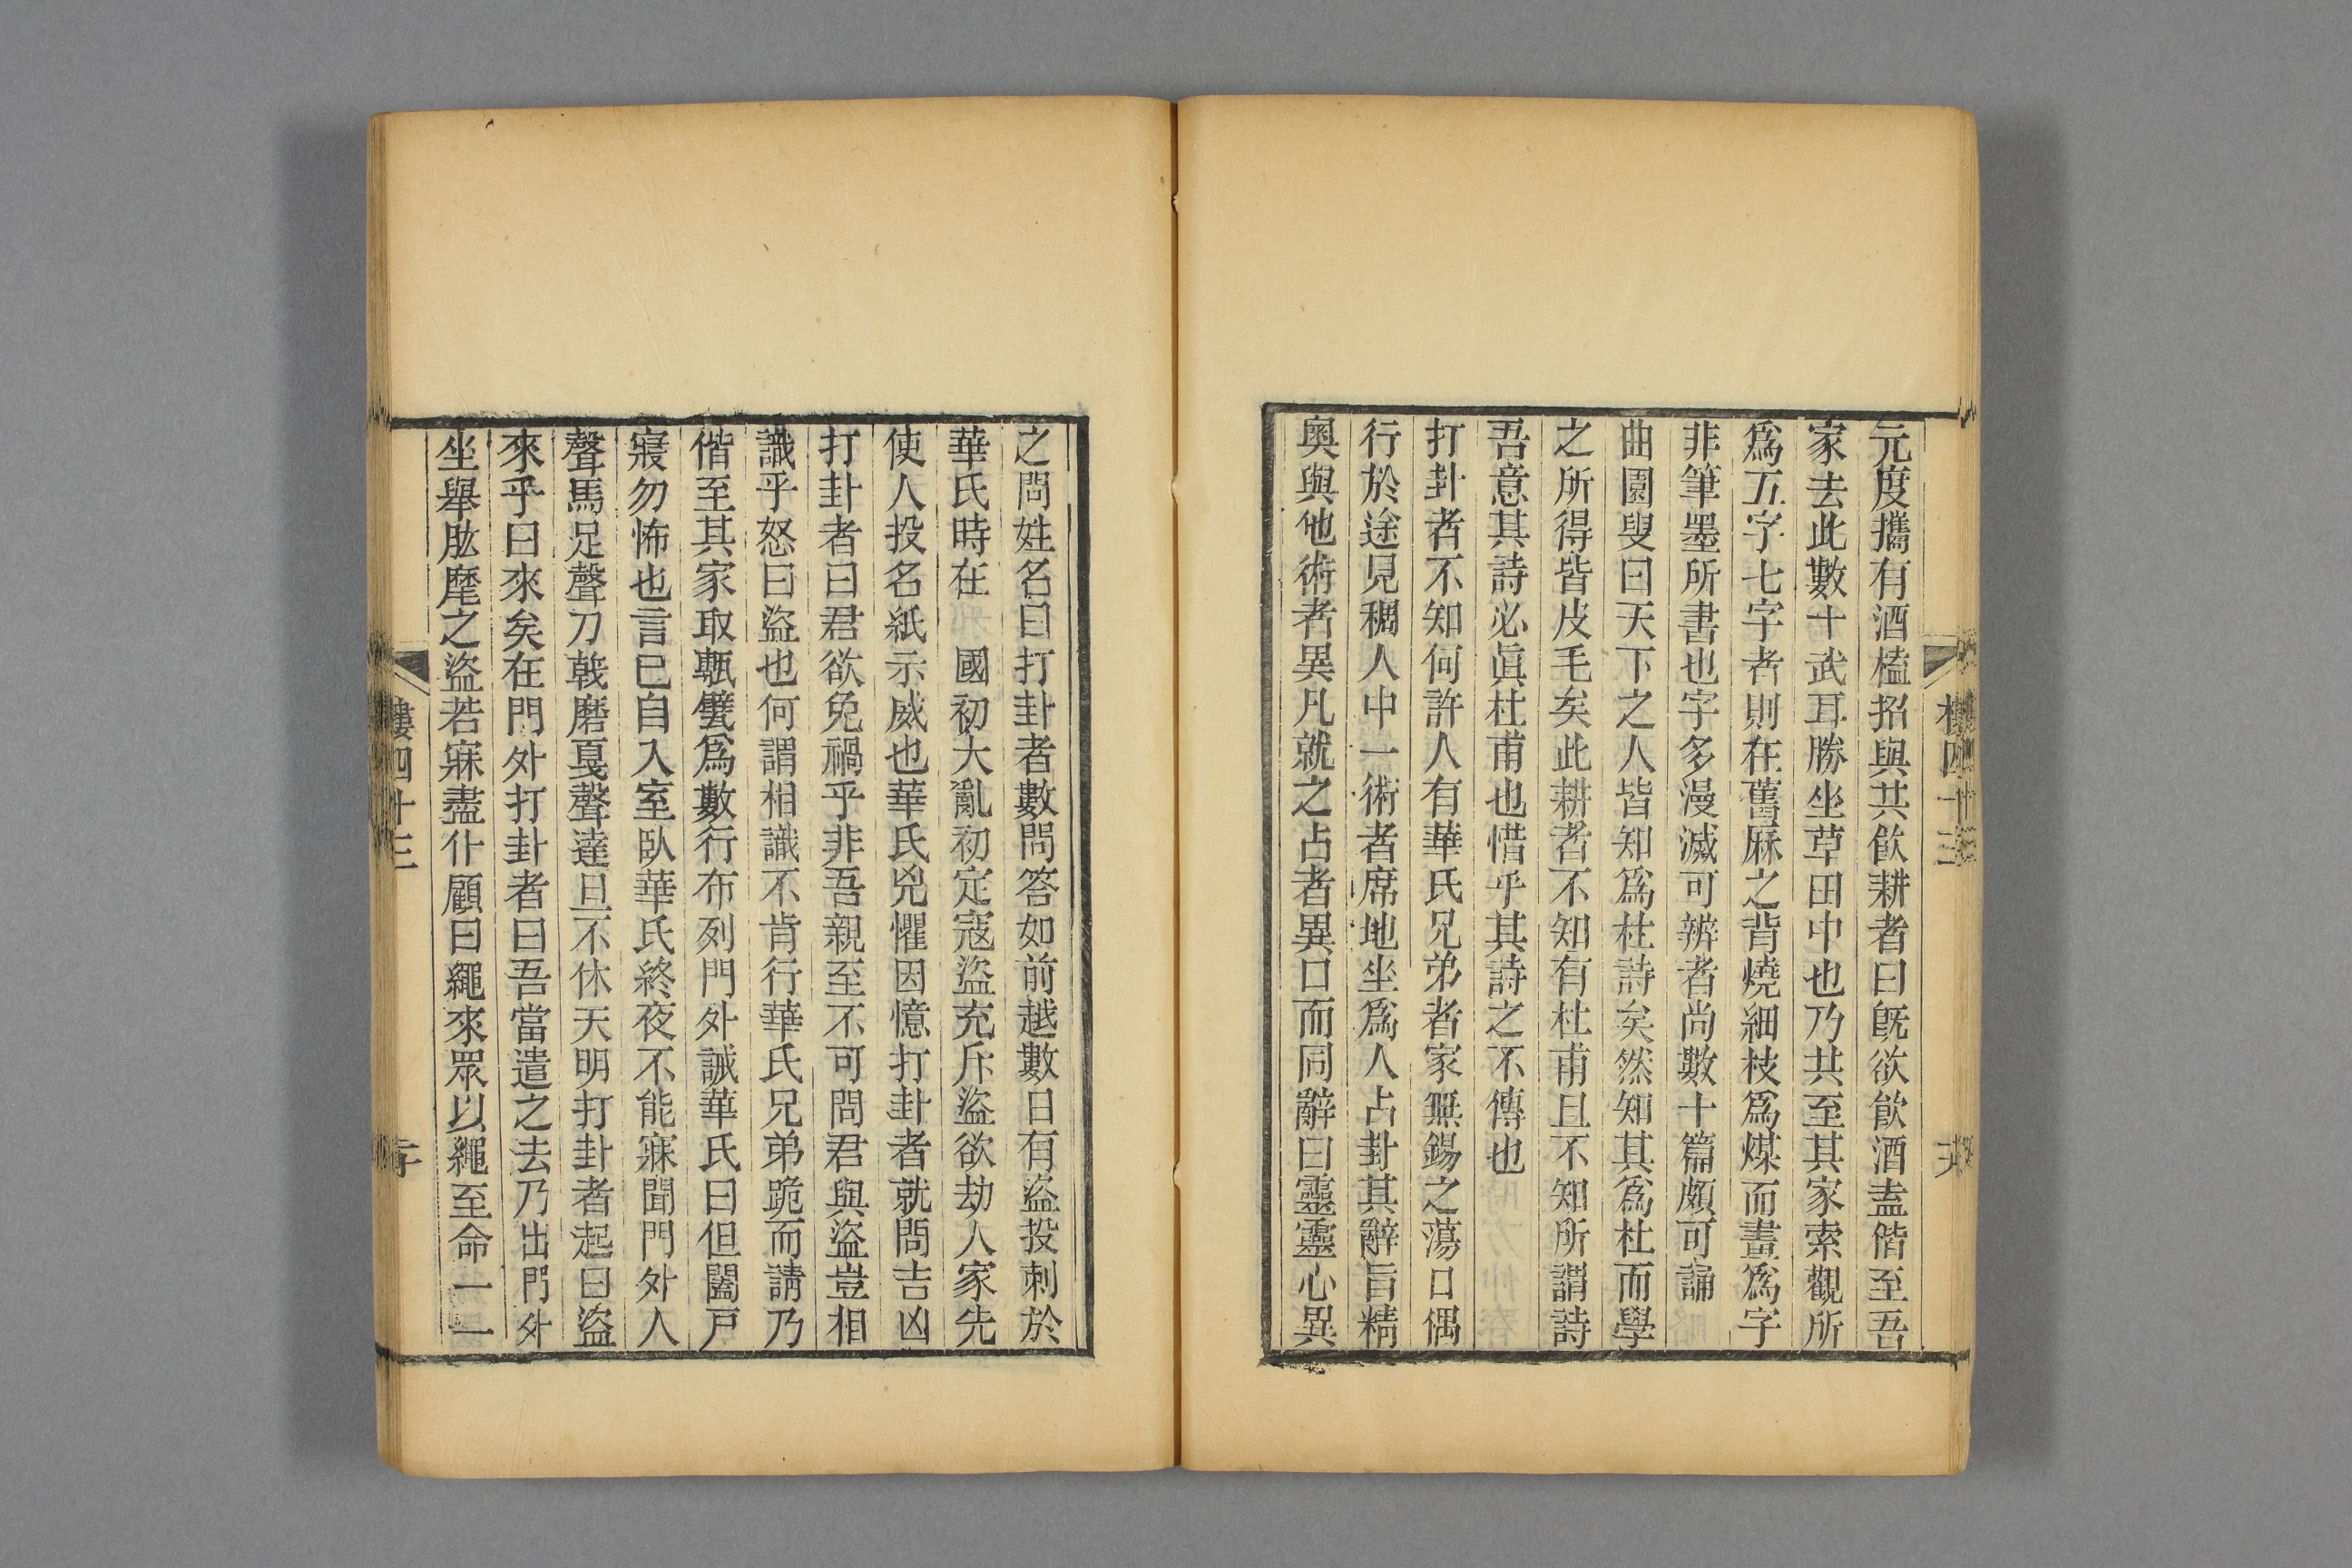 元度攜有酒榼招與共飮耕者曰旣欲飮酒盍偕至吾
家去此數十武耳勝坐草田中也乃共至其家索觀所
爲五字七字者則在舊厤之背燒細枝爲煤而畫爲字
非筆墨所書也字多漫滅可辨者尚數十篇頗可誦
曲園叟曰天下之人皆知爲杜詩矣然知其爲杜而學
之所得皆皮毛矣此耕者不知有杜甫且不知所謂詩
吾意其詩必眞杜甫也惜乎其詩之不傳也
打卦者不知何許人有華氏兄弟者家無錫之蕩口偶
行於途見稠人中一術者席地坐爲人占卦其辭旨精
奧與他術者異凡就之占者異口而同辭曰靈靈心異
之問姓名曰打卦者數問答如前越數日有盜投刺於
華氏時在 國初大亂初定寇盜充斥盜欲劫人家先
使人投名紙示威也華氏兇懼因憶打卦者就問吉凶
打卦者曰君欲免禍乎非吾親至不可問君與盜豈相
識乎怒曰盜也何謂相識不肯行華氏兄弟跪而請乃
偕至其家取瓾甓爲數行布列門外誡華氏曰但闔戸
寢勿怖也言已自入室臥華氏終夜不能寐聞門外人
聲馬足聲刀戟磨戛聲達旦不休天明打卦者起曰盜
來乎曰來矣在門外打卦者曰吾當遣之去乃出門外
坐舉肱麾之盜若寐盡仆顧曰繩來眾以繩至命一一
樓四十三